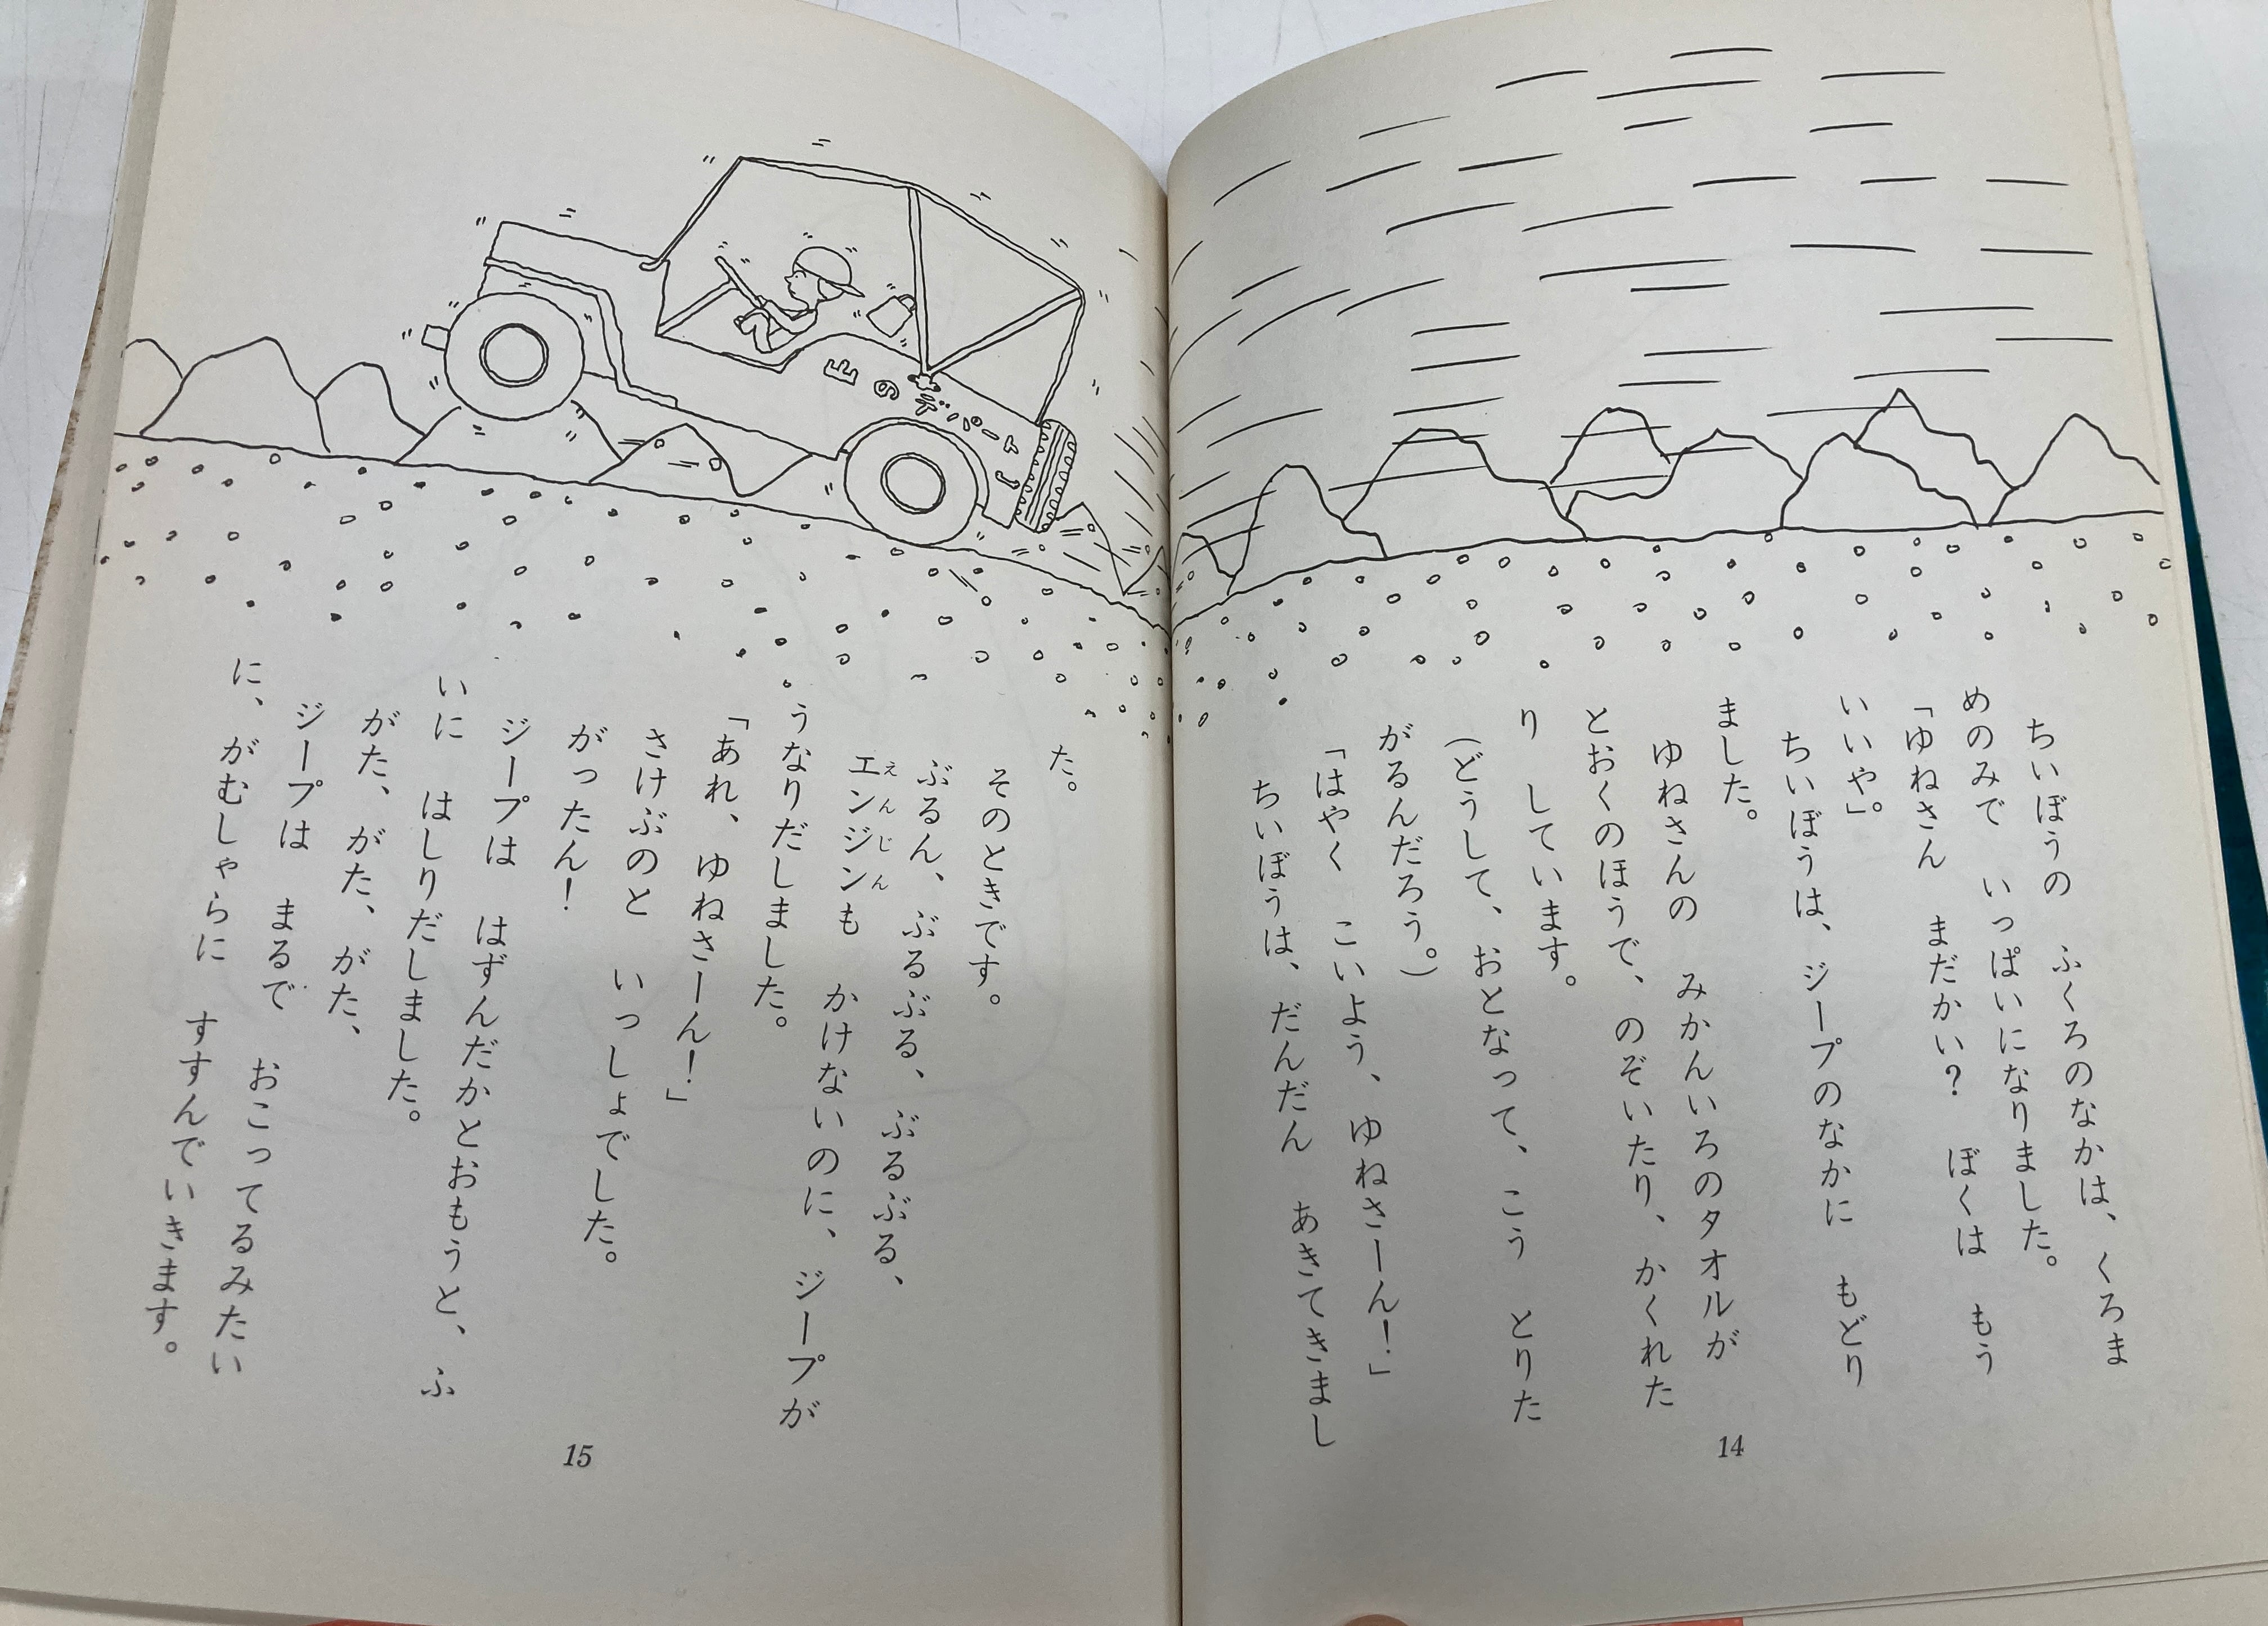 ちいぼうの　ふくろのなかは、くろま
めのみで　いっぱいになりました。
「ゆねさん　まだかい？　ぼくは　もう
いいや」
ちいぼうは、ジープのなかに　もどり
ました。
ゆねさんの　みかんいろのタオルが
とおくのほうで、のぞいたり、かくれた
り　しています。
（どうして、おとなって、こう　とりた
がるんだろう。）
「はやく　こいよう、ゆねさーん！」
ちいぼうは、だんだん　あきてきまし
14
山のデパート
た。
そのときです。
ぶるん、ぶるぶる、ぶるぶる、
エンジンも　かけないのに、ジープが
えんじん
うなりだしました。
「あれ、ゆねさーん！」
さけぶのと　いっしょでした。
がったん！
ジープは　はずんだかとおもうと、ふ
いに　はしりだしました。
がた、がた、がた、
ジープは　まるで　おこってるみたい
に、がむしゃらに　すすんでいきます。
15